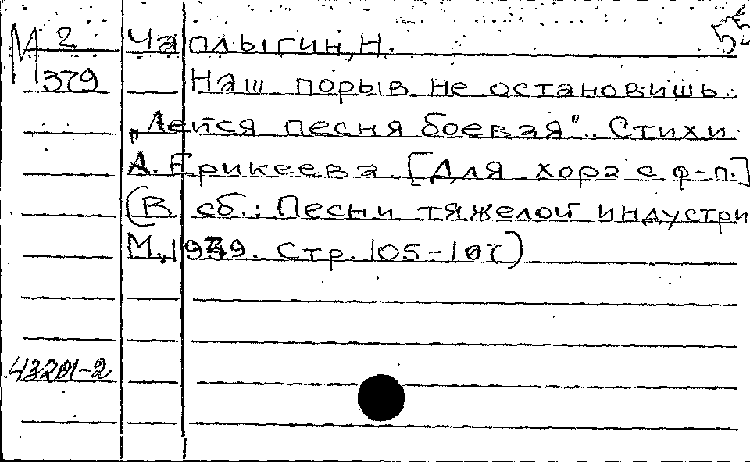 М 2 Чаплыгин, Н. 55
379 Наш порыв не остановишь.
„Лейся песня боевая". Стихи
А. Ерикеева. [Для хора с ф-п.]
(В сб.: Песни тяжелой индустри
М., 1939. Стр. 105-107)
43201-2